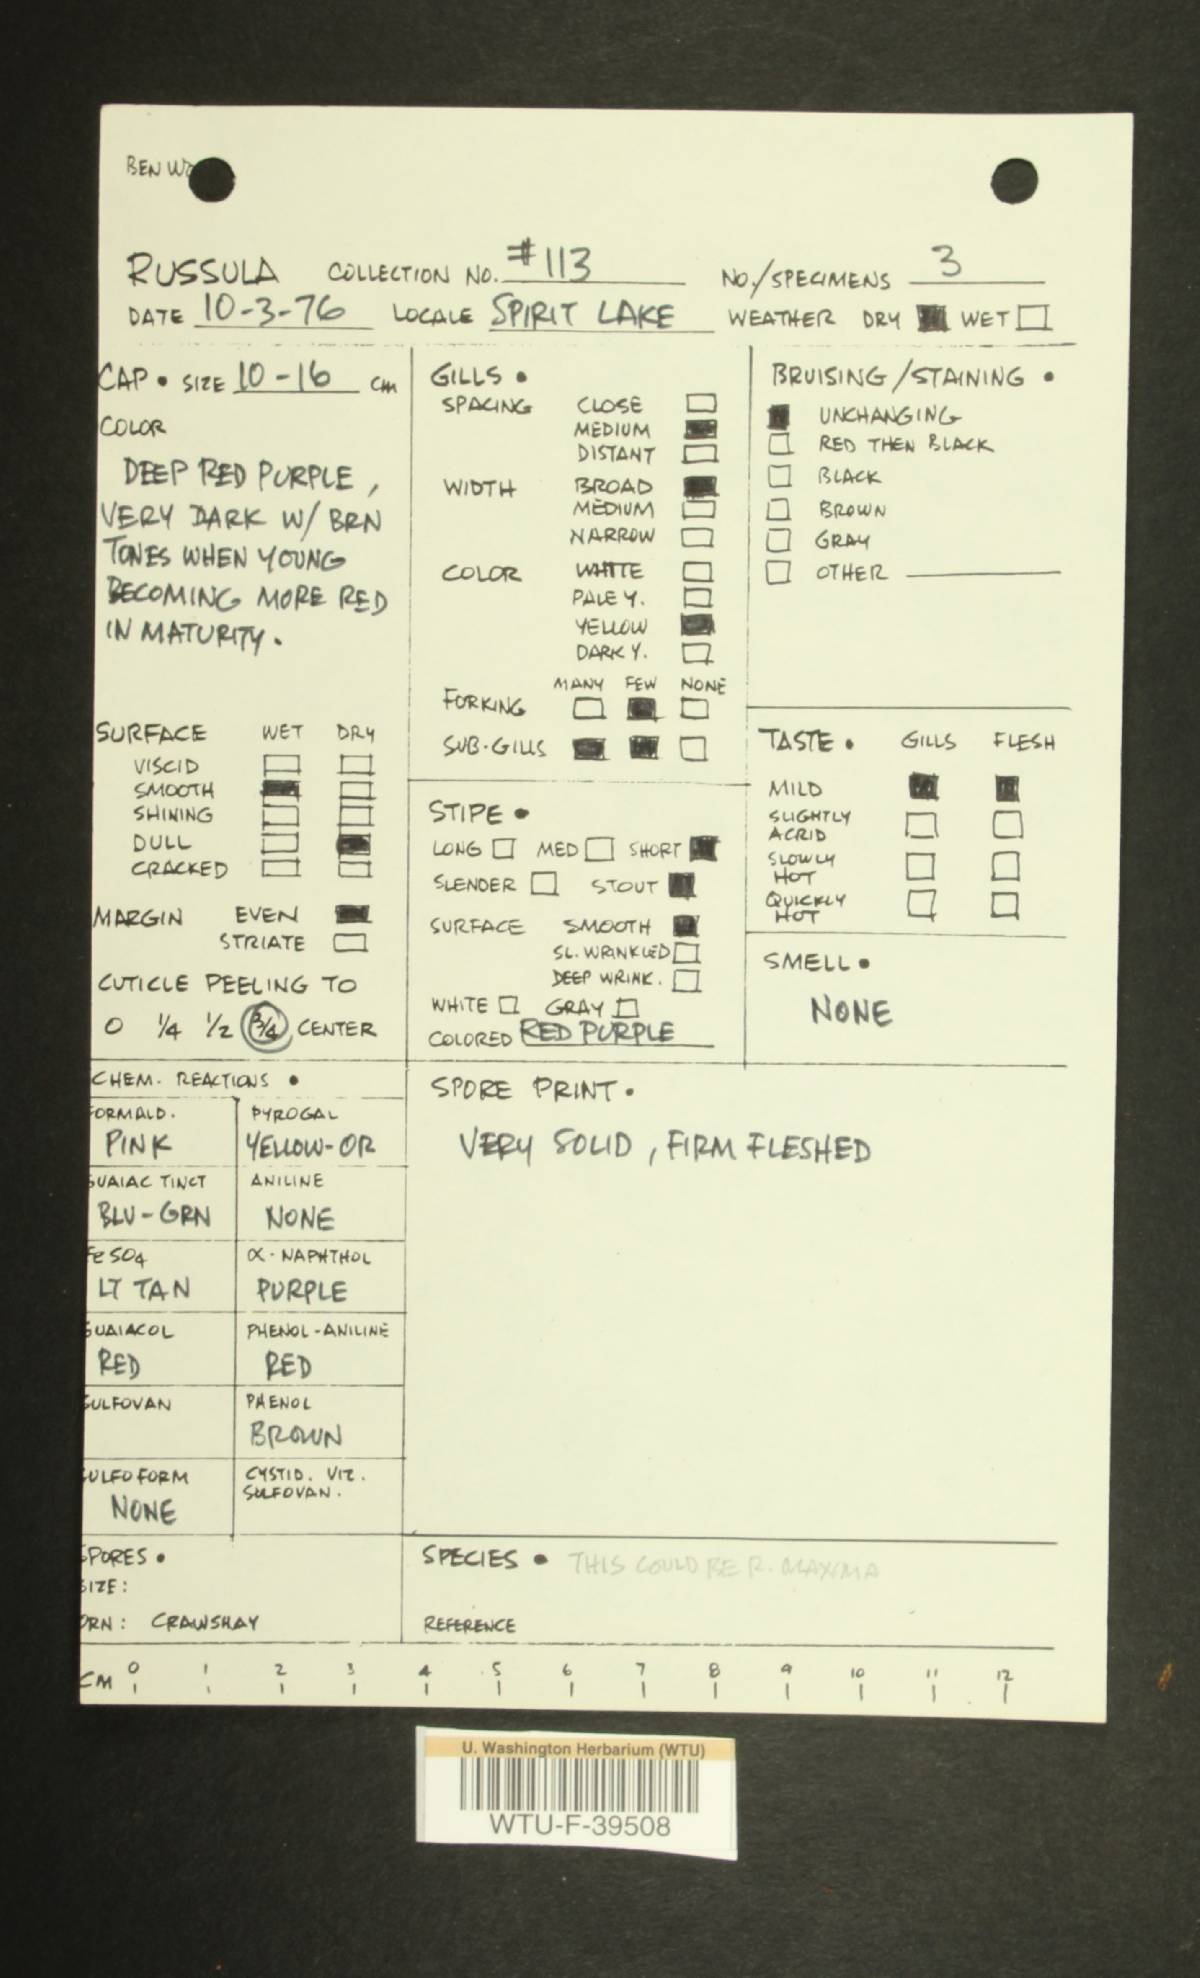 BEN WO
RUSSULA COLLECTION NO. #113 NO./SPECIMENS 3
DATE 10-3-76 LOCALE SPIRIT LAKE WEATHER DRY WET
CAP • SIZE 10-16 CM
COLOR
DEEP RED PURPLE,
VERY DARK W/ BRN
TONES WHEN YOUNG
BECOMING MORE RED
IN MATURITY.
SURFACE WET DRY
VISCID
SMOOTH
SHINING
DULL
CRACKED
MARGIN EVEN
STRIATE
CUTICLE PEELING TO
0 1/4 1/2 3/4 CENTER
GILLS •
SPACING CLOSE
MEDIUM
DISTANT
WIDTH BROAD
MEDIUM
NARROW
COLOR WHITE
PALE Y.
YELLOW
DARK Y.
MANY FEW NONE
FORKING
SUB-GILLS
STIPE •
LONG MED SHORT
SLENDER STOUT
SURFACE SMOOTH
SL. WRINKLED
DEEP WRINK.
WHITE GRAY
COLORED RED PURPLE
BRUISING/STAINING •
UNCHANGING
RED THEN BLACK
BLACK
BROWN
GRAY
OTHER
TASTE • GILLS FLESH
MILD
SLIGHTLY
ACRID
SLOWLY
HOT
QUICKLY
HOT
SMELL •
NONE
CHEM. REACTIONS •
FORMALD. PYROGAL
PINK YELLOW-OR
GUAIAC TINCT ANILINE
BLU-GRN NONE
FeSO4 α-NAPHTHOL
LT TAN PURPLE
GUAIACOL PHENOL-ANILINE
RED RED
SULFOVAN PHENOL
BROWN
SULFOFORM CYSTID. VIZ.
SULFOVAN.
NONE
SPORE PRINT •
VERY SOLID, FIRM FLESHED
SPORES •
SIZE:
ORN: CRAWSHAY
SPECIES • THIS COULD BE R. MAXIMA
REFERENCE
CM 0 1 2 3 4 5 6 7 8 9 10 11 12
U. Washington Herbarium (WTU)
WTU-F-39508